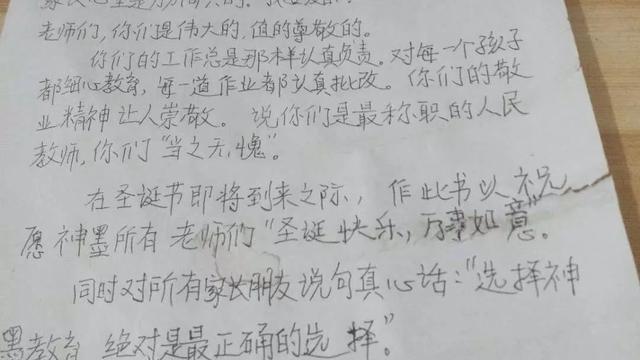 老师们，你们是伟大的，值的尊敬的。
你们的工作总是那样认真负责。对每一个孩子
都细心教育，每一道作业都认真批改。你们的敬
业精神让人崇敬。说你们是最称职的人民
教师，你们"当之无愧"。
在圣诞节即将到来之际，作此书以祝
愿神墨所有老师们"圣诞快乐，万事如意"。
同时对所有家长朋友说句真心话："选择神
墨教育 绝对是最正确的选择。"